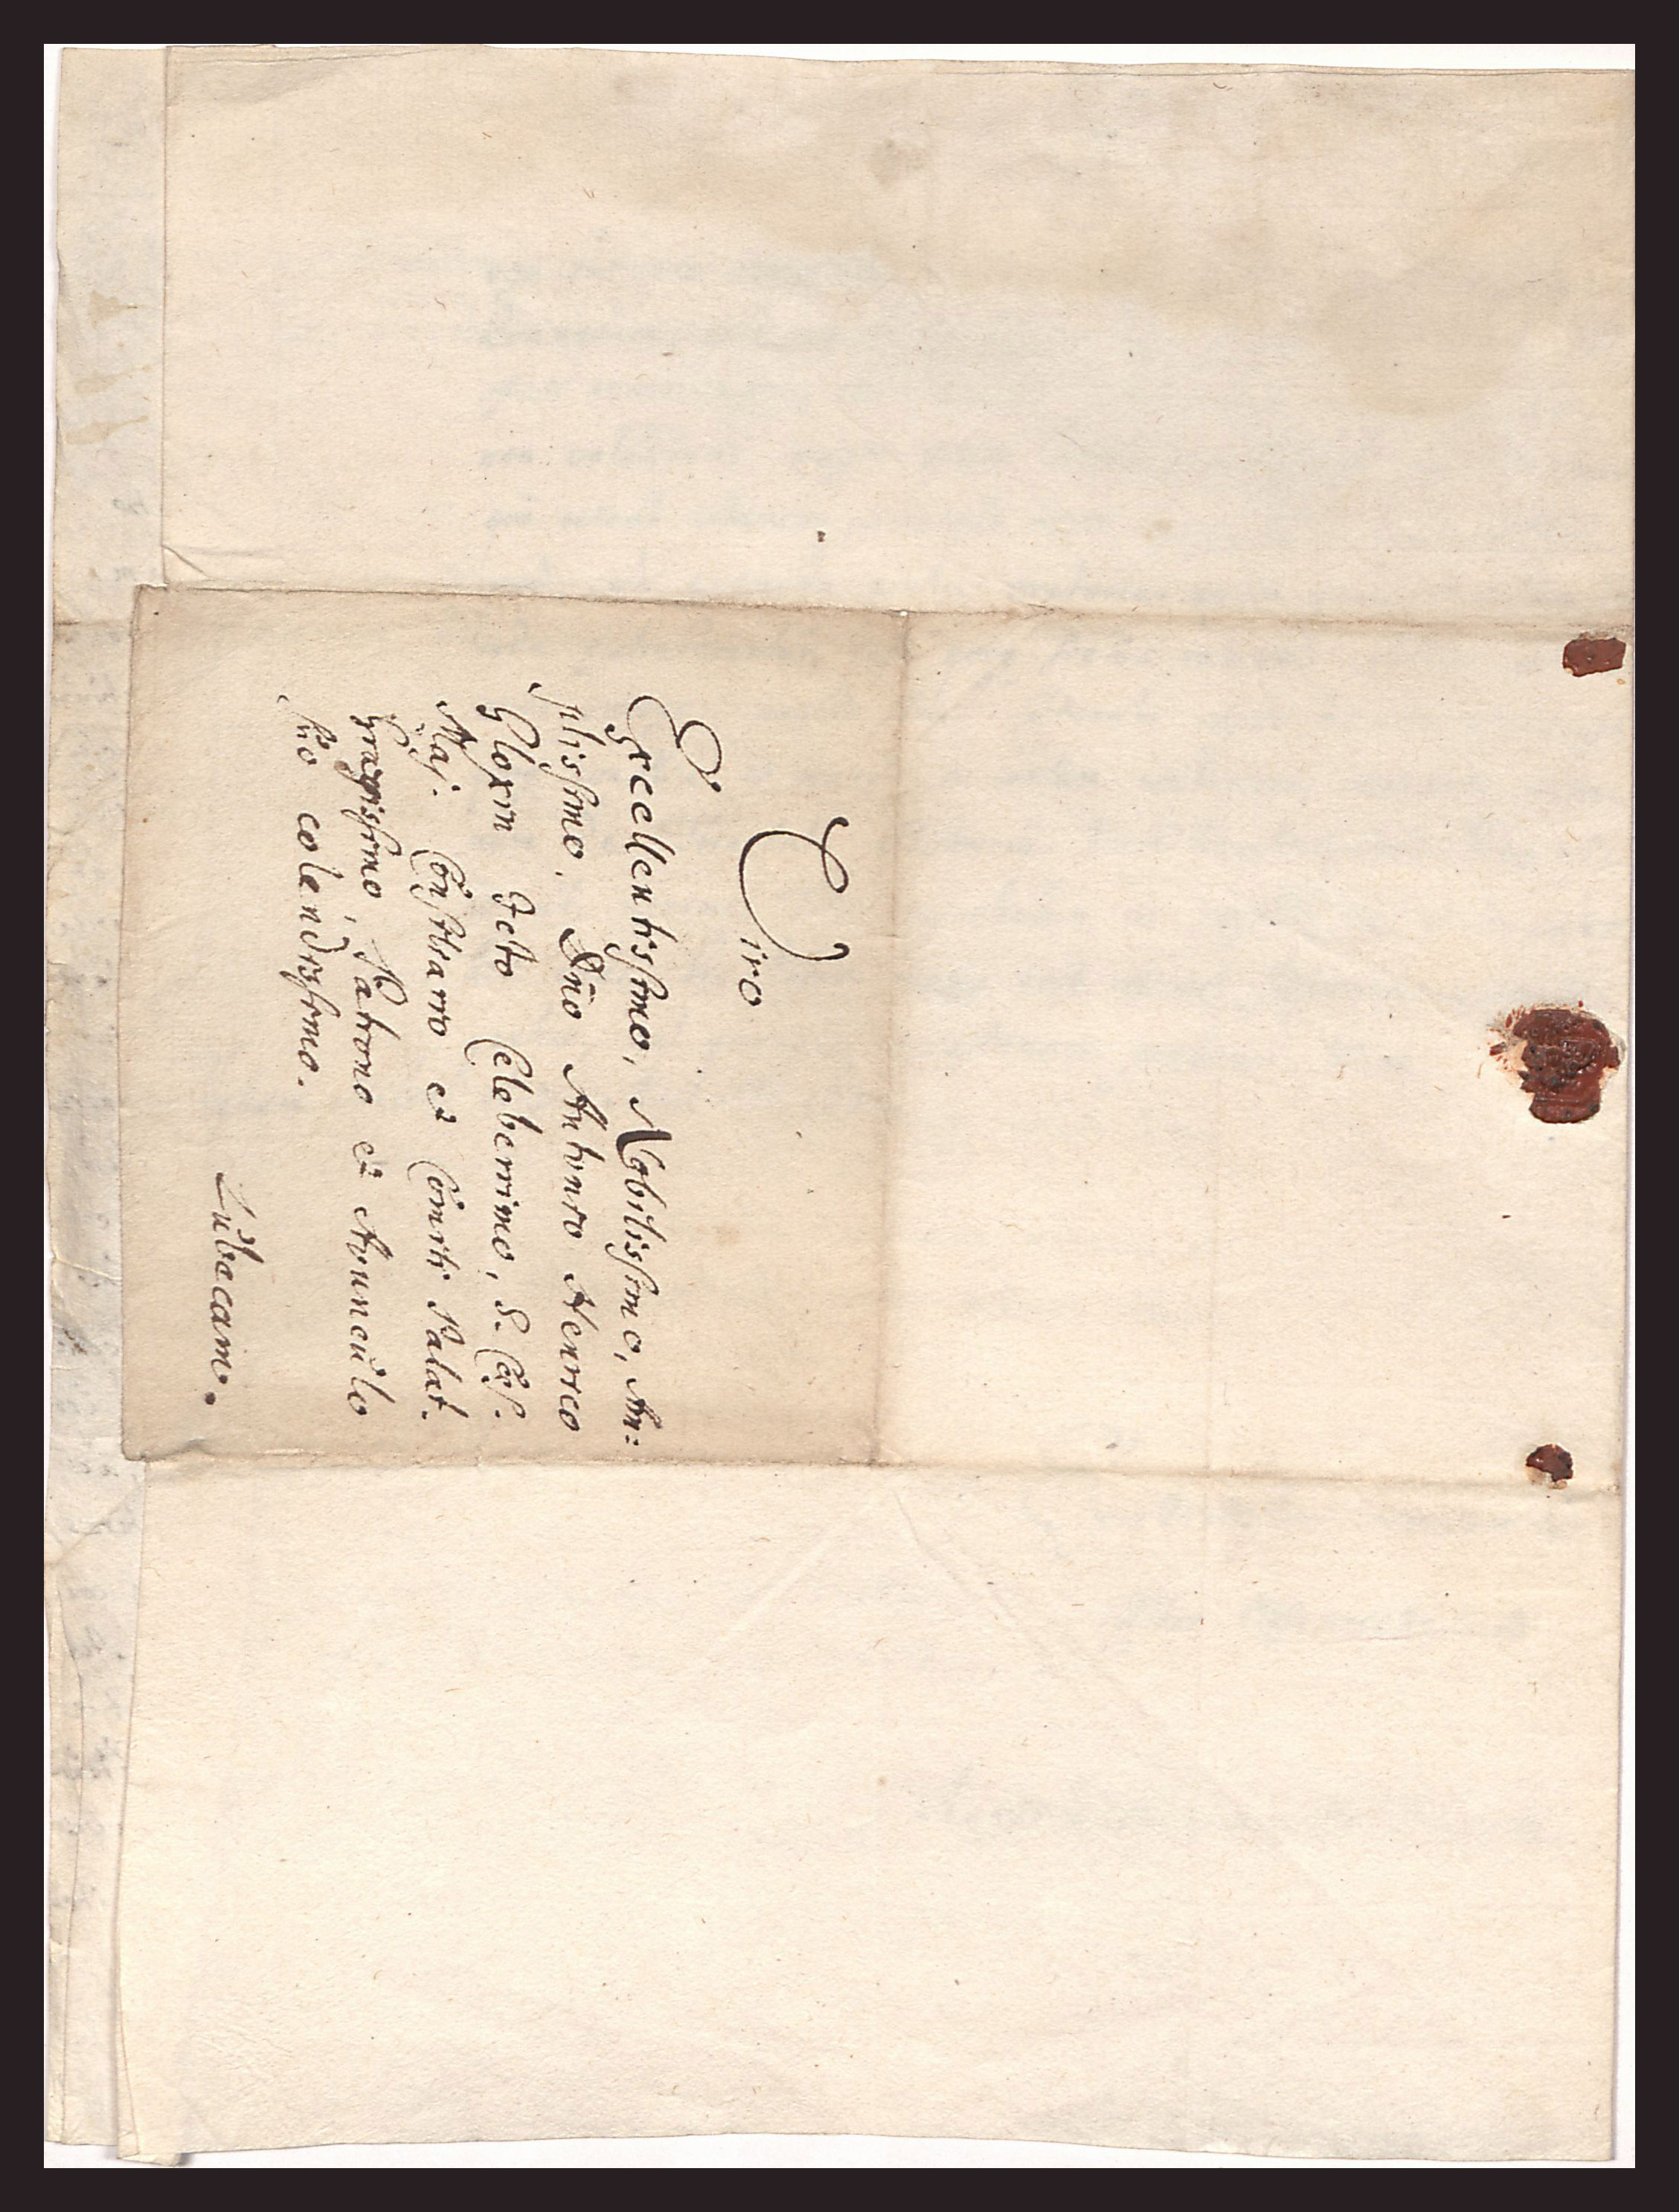 Viro
Excellentissimo, Nobilissimo, Am=
plissimo, Dn̄o Antonio Henrico
Gloxin Jcto Celeberrimo, S. Cæs.
Maj. Consiliario et Comiti Palat.
Gravissimo, Patrono et Avunculo
suo colendissimo.
Lubecam.